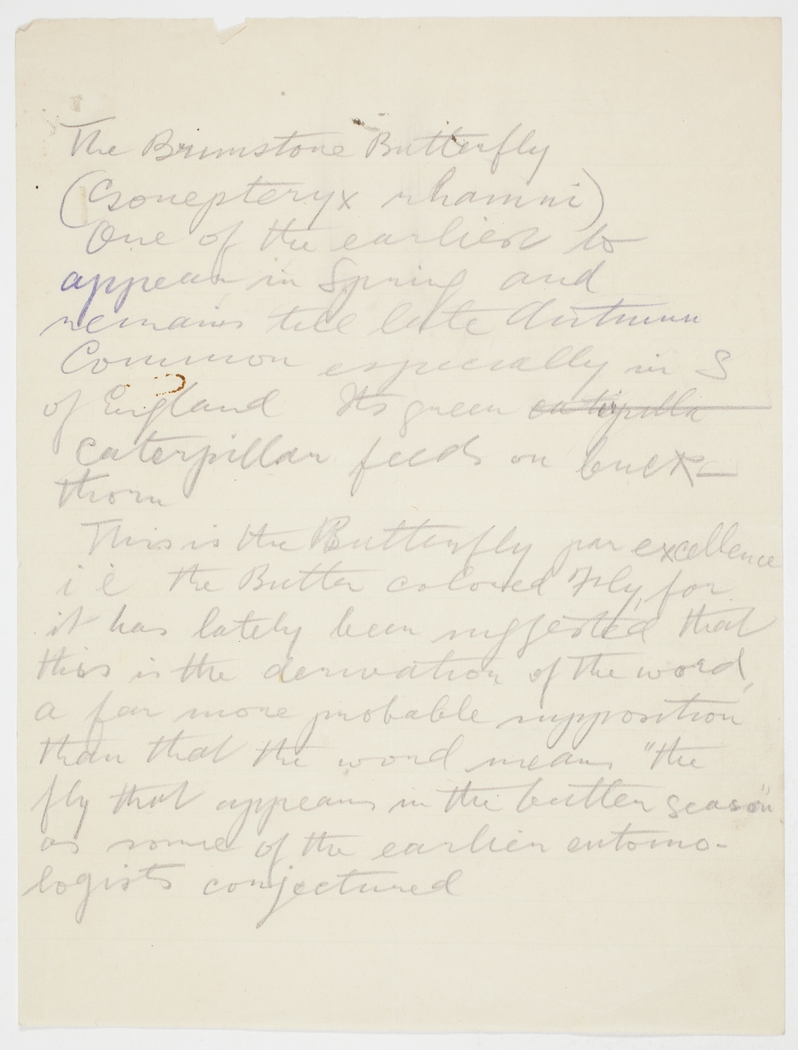 The Brimstone Butterfly
(Gonepteryx rhamni)
One of the earliest to
appear in Spring and
remains till late Autumn
Common especially in S
of England Its green catipilla
caterpillar feeds on buck-
thorn
This is the Butterfly par excellence
i e the Butter colored Fly, for
it has lately been suggested that
this is the derivation of the word,
a far more probable supposition
than that the word means "the
fly that appears in the butter season"
as some of the earlier entomo-
logists conjectured